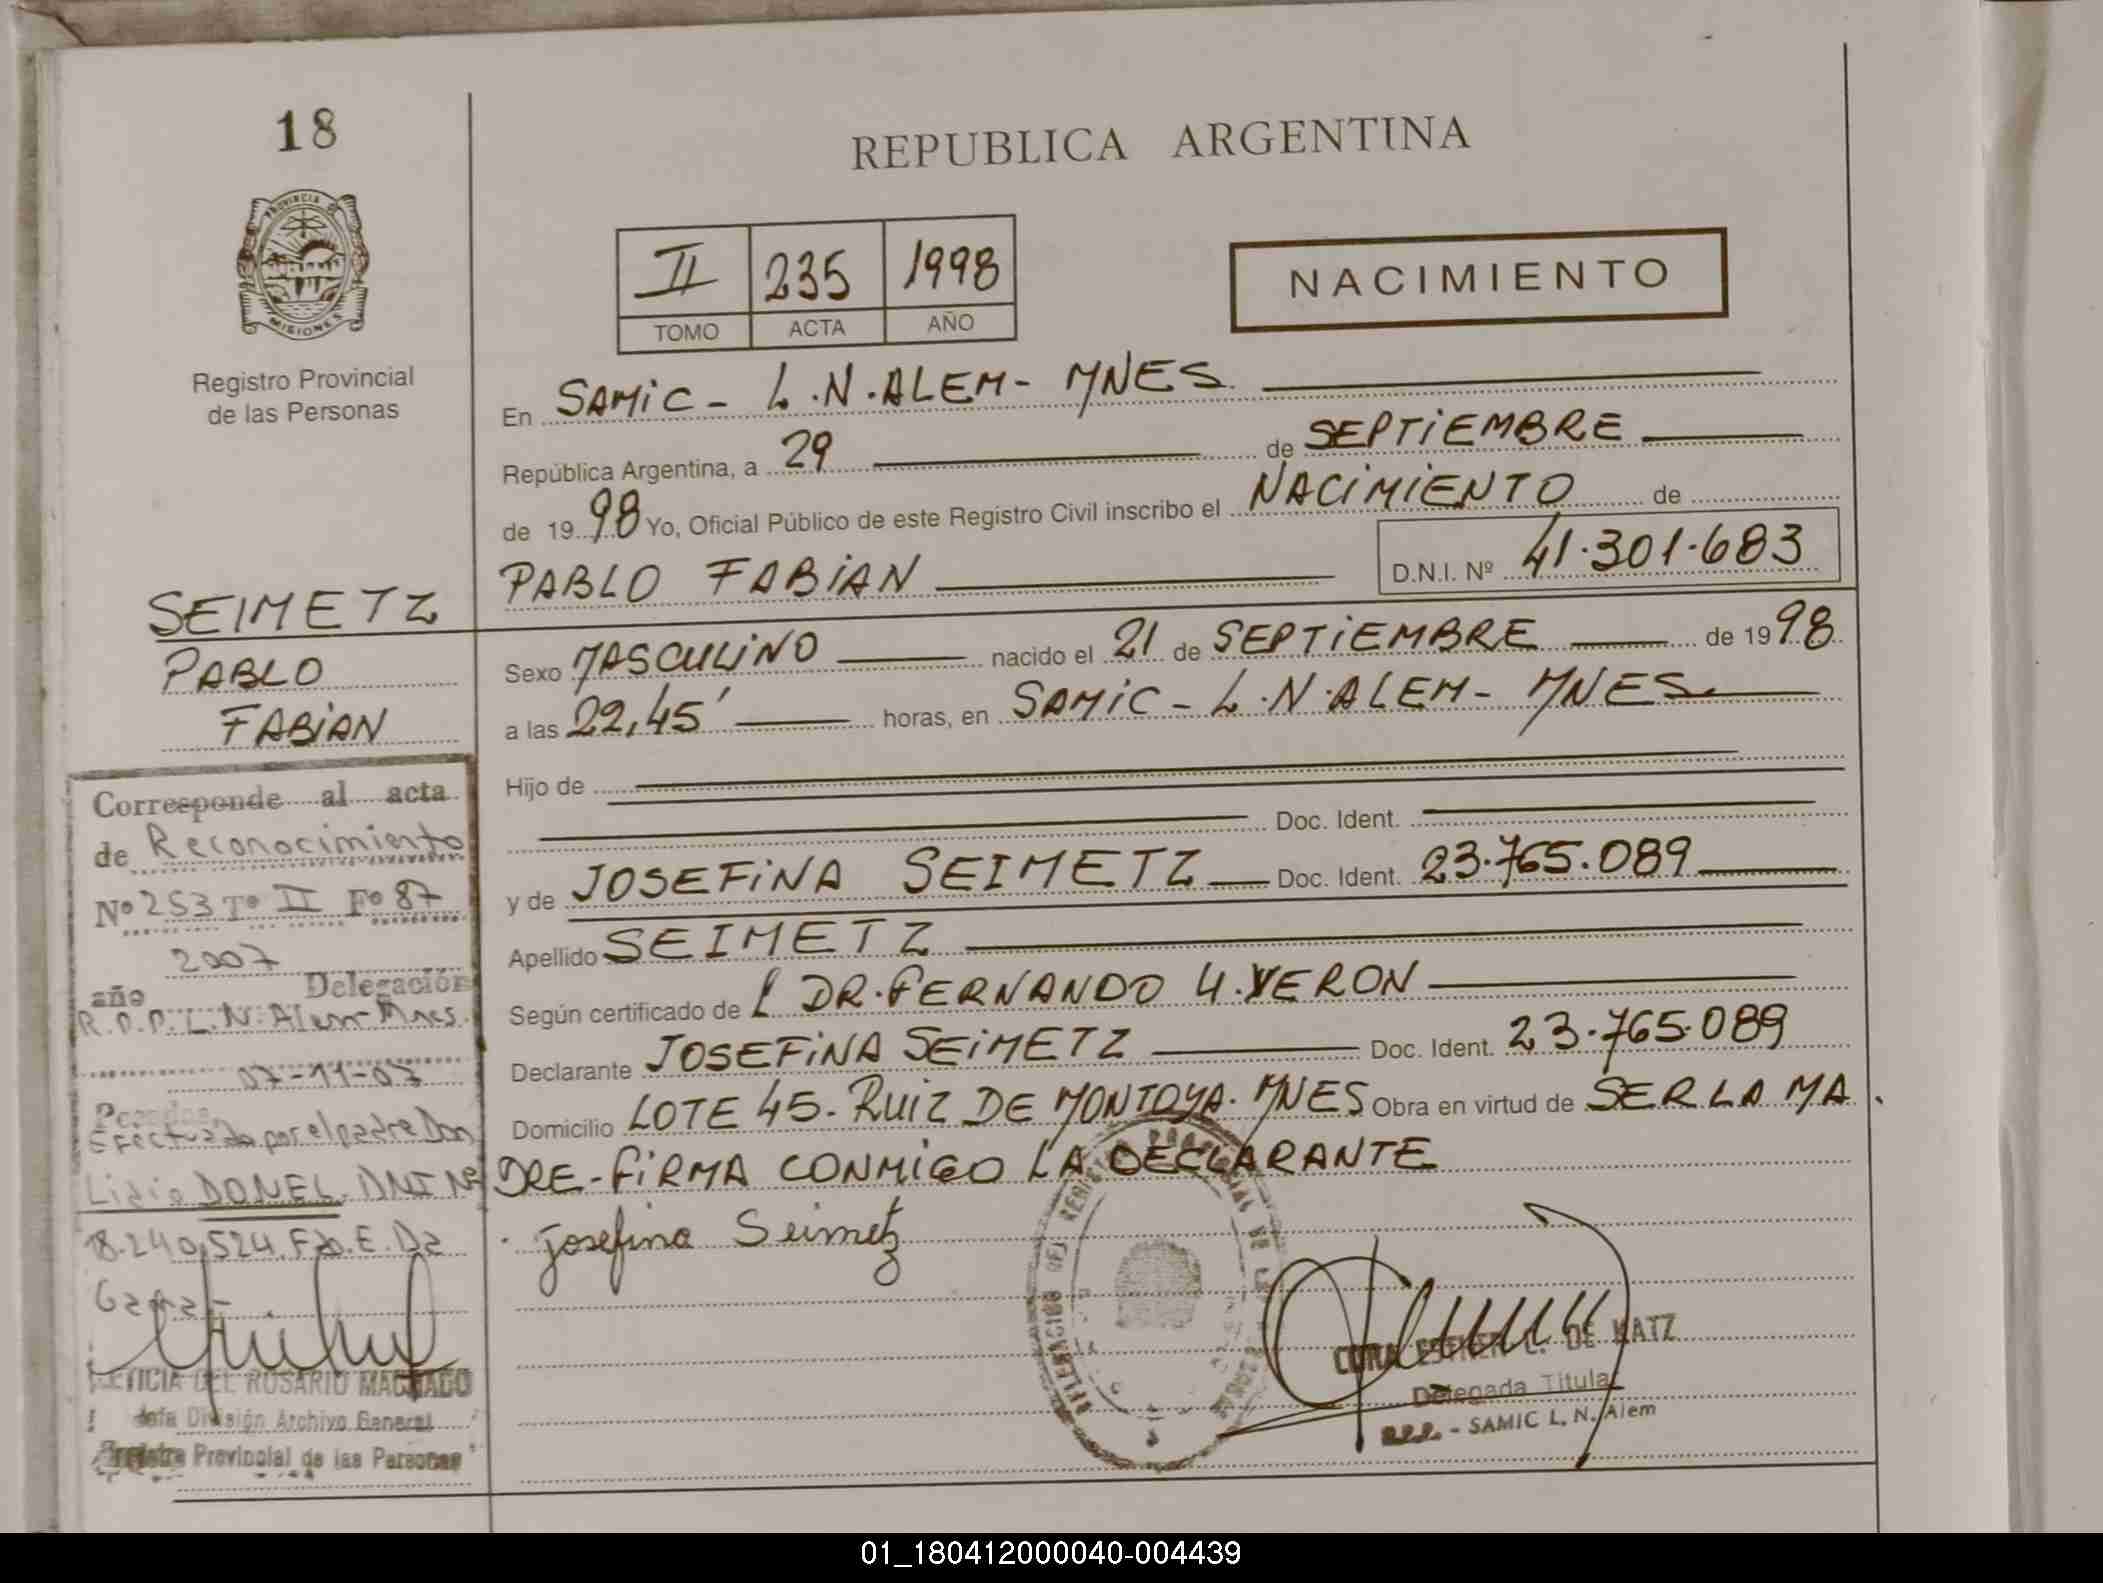 18
PROVINCIA DE
MISIONES
Registro Provincial
de las Personas
SEIMETZ
PABLO
FABIAN
Corresponde al acta
de Reconocimiento
Nº 253 Tº II Fº 87
2007
año Delegación
R.P.P. L.N. Alem Mnes.
07-11-07
Posadas,
Efectuado por el padre Don
DONEL. DNI Nº
18.240.524. Fdo. E. De
LETICIA DEL ROSARIO MACHADO
Jefa División Archivo General
Registro Provincial de las Personas
REPUBLICA ARGENTINA
II 235 1998
TOMO ACTA AÑO
NACIMIENTO
En SAMIC - L.N.ALEM - MNES.
República Argentina, a 29 de SEPTIEMBRE
de 1998 Yo, Oficial Público de este Registro Civil inscribo el NACIMIENTO de
PABLO FABIAN D.N.I. Nº 41.301.683
Sexo MASCULINO nacido el 21 de SEPTIEMBRE de 1998
a las 22,45' horas, en SAMIC - L.N.ALEM - MNES.
Hijo de
Doc. Ident.
y de JOSEFINA SEIMETZ Doc. Ident. 23.765.089
Apellido SEIMETZ
Según certificado de DR. FERNANDO U. VERON
Declarante JOSEFINA SEIMETZ Doc. Ident. 23.765.089
Domicilio LOTE 45. RUIZ DE MONTOYA. MNES Obra en virtud de SER LA MA
DRE - FIRMA CONMIGO LA DECLARANTE
Josefina Seimetz
ESTHER L. DE KATZ
Delegada Titular
- SAMIC L. N. Alem
01_180412000040-004439